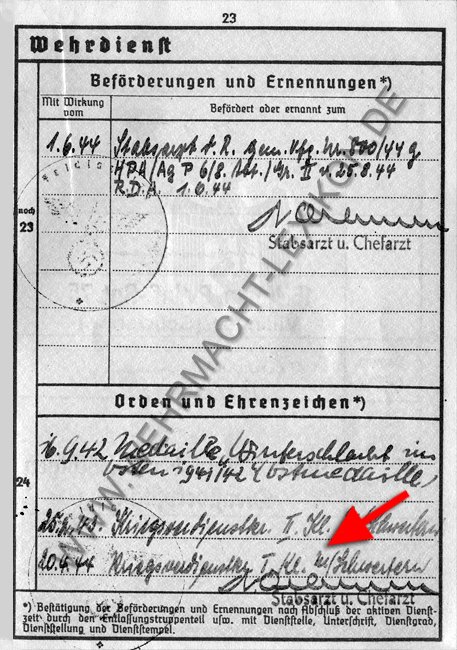 23
Wehrdienst
Beförderungen und Ernennungen*)
Mit Wirkung vom
Befördert oder ernannt zum
1.6.44 Stabsarzt d. R. gem. Vfg. Nr. 800/44 g.
HPA/Ag P 6/8. Abt./Gr. II v. 25.8.44
R.D.A. 1.6.44
noch
23
Stabsarzt u. Chefarzt
Orden und Ehrenzeichen*)
24
9.42 Medaille „Winterschlacht im
Osten" 1941/42 (Ostmedaille)
Kriegsverdienstkr. II. Kl. Schwertern
20.4.44 Kriegsverdienstkr. I. Kl. m/Schwertern
Stabsarzt u. Chefarzt
*) Bestätigung der Beförderungen und Ernennungen nach Abschluß der aktiven Dienst-
zeit durch den Entlassungstruppenteil usw. mit Dienststelle, Unterschrift, Dienstgrad,
Dienststellung und Dienststempel.
WWW.WEHRMACHT-LEXIKON.DE